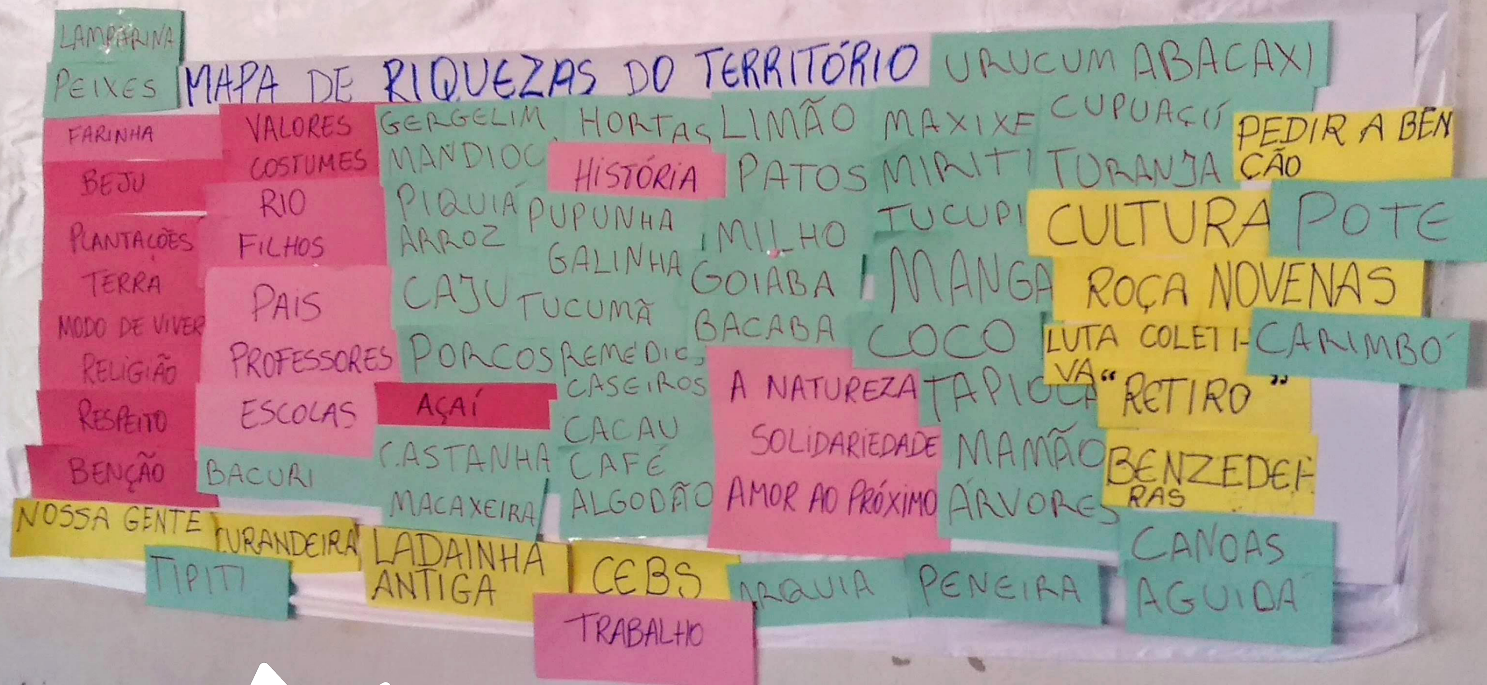 LAMPARINA
PEIXES
MAPA DE RIQUEZAS DO TERRITÓRIO
URUCUM
ABACAXI
FARINHA
BEJU
PLANTAÇÕES
TERRA
MODO DE VIVER
RELIGIÃO
RESPEITO
BENÇÃO
VALORES
COSTUMES
RIO
FILHOS
PAIS
PROFESSORES
ESCOLAS
BACURI
GERGELIM
MANDIOC
PIQUIÁ
ARROZ
CAJU
PORCOS
AÇAÍ
CASTANHA
MACAXEIRA
HORTAS
HISTÓRIA
PUPUNHA
GALINHA
TUCUMÃ
REMÉDIOS
CASEIROS
CACAU
CAFÉ
ALGODÃO
LIMÃO
PATOS
MILHO
GOIABA
BACABA
A NATUREZA
SOLIDARIEDADE
AMOR AO PRÓXIMO
MAXIXE
MIRITI
TUCUPI
MANGA
COCO
TAPIOCA
MAMÃO
ÁRVORES
CUPUAÇÚ
TURANJA
CULTURA
ROÇA
LUTA COLETI-
VA
"RETIRO"
BENZEDEI-
RAS
CANOAS
AGUIDÁ
PEDIR A BÊN
ÇÃO
POTE
NOVENAS
CARIMBÓ
NOSSA GENTE
CURANDEIRA
TIPITI
LADAINHA
ANTIGA
CEBS
TRABALHO
PENEIRA